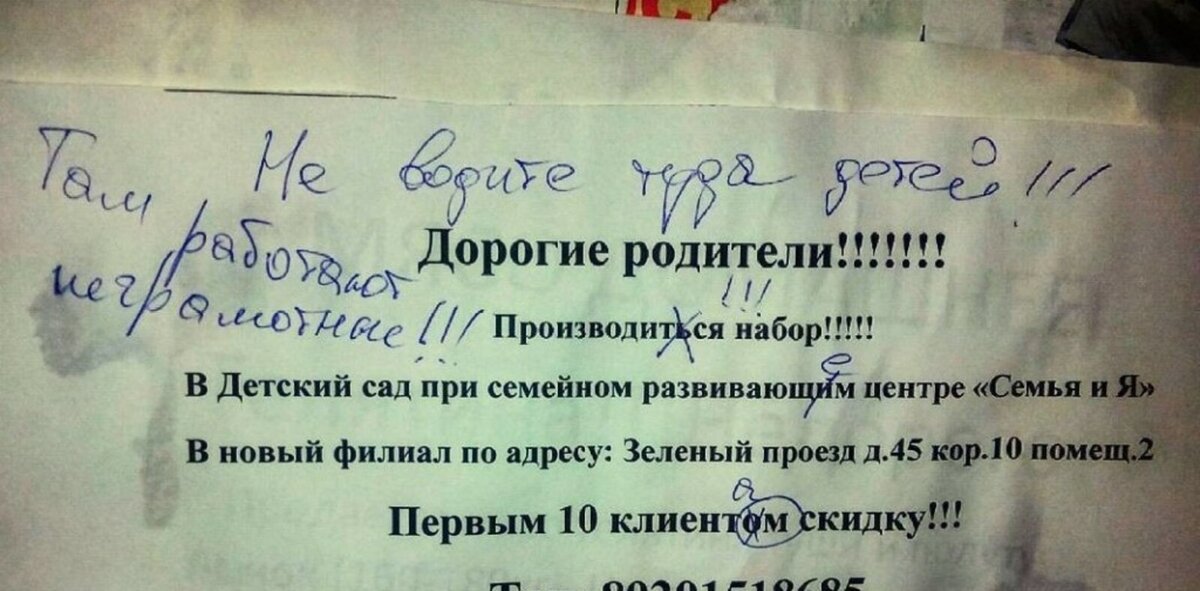 Не водите туда детей!!!
Там
работают
неграмотные!!!
Дорогие родители!!!!!!!
!!!
Производиться набор!!!!!
е
В Детский сад при семейном развивающим центре «Семья и Я»
В новый филиал по адресу: Зеленый проезд д.45 кор.10 помещ.2
а
Первым 10 клиентом скидку!!!